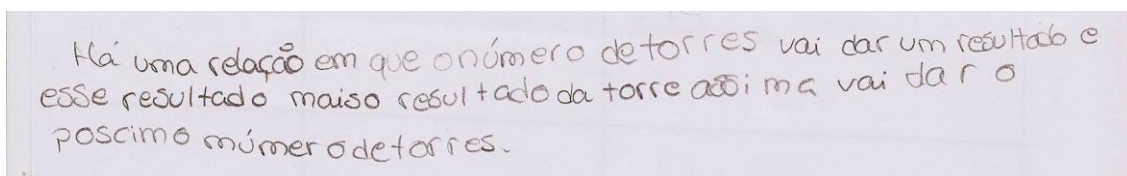 Há uma relação em que o número de torres vai dar um resultado e
esse resultado mais o resultado da torre assima vai dar o
poscimo número de torres.